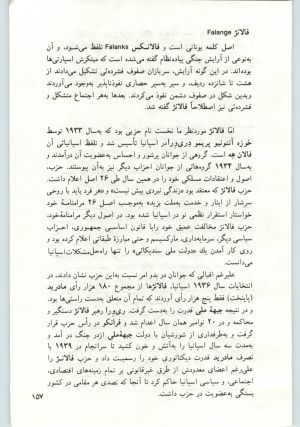 فالانژ Falange
اصل کلمه یونانی است و فالانکس Falanks تلفظ می‌شود، و آن
به‌نوعی از آرایش جنگی پیاده‌نظام گفته می‌شده است که مبتکرش اسپارتی‌ها
بوده‌اند. در این گونه آرایش، سربازان صفوف فشرده‌ئی تشکیل می‌دادند از
هشت تا شانزده ردیف، و سپر به‌سپر حصاری نفوذناپذیر به‌وجود می‌آوردند
و بدین شکل در صفوف دشمن نفوذ می‌کردند. بعدها به‌هر اجتماع متشکل و
فشرده‌ئی نیز اصطلاحاً فالانژ گفته شد.
امّا فالانژ موردنظر ما نخست نام حزبی بود که به‌سال ۱۹۳۳ توسط
خوزه آنتونیو پریمو دِری‌وِرا در اسپانیا تأسیس شد و تلفظ اسپانیائی آن
فالان‌خه است. گروهی از جوانان پرشور و احساس به‌عضویت آن درآمدند و
سال ۱۹۳۴ گروه‌هائی از جوانان احزاب دیگر نیز به‌آن پیوستند. حزب،
اصول و اعتقادات مسلکی خود را در همین سال طی ۲۶ اصل اعلام داشت.
حزب فالانژ که معتقد بود «زندگی نبردی بیش نیست» و «هر فرد باید با روحی
سرشار از ایثار و خدمت به‌ملت بزید» به‌موجب اصل ۲۶ مرامنامهٔ خود
خواستار استقرار نظمی نو در اسپانیا شده بود. در اصول دیگر مرامنامه‌خود،
حزب فالانژ مخالفت عمیق خود رابا قانون اساسی جمهوری، احزاب
سیاسی دیگر، سرمایه‌داری، مارکسیسم و حتی مبارزهٔ طبقاتی اعلام کرده بود و
روی کار آمدن یک «دولت ملی سندیکائی» را تنها راه‌حل‌مشکلات اسپانیا
می‌دانست.
علیرغم اقبالی که جوانان در بدو امر نسبت به‌این حزب نشان دادند، در
انتخابات سال ۱۹۳۶ اسپانیا، فالانژها از مجموع ۱۸۰ هزار رأی مادرید
(پایتخت) فقط پنج هزار رأی آوردند که تمام آن متعلق به‌دست راستی‌ها بود.
و در نتیجه جبههٔ ملی قدرت را به‌دست گرفت. ری‌وِرا رهبر فالانژ دستگیر و
محاکمه و در ۲۰ نوامبر همان سال اعدام شد و فرانکو در رأس حزب قرار
گرفت و به‌طرفداری از شورشیان با دولت جبهه‌ملی ازدر جنگ در آمد و
به‌مدت سه سال اسپانیا را به‌آتش و خون کشید تا سرانجام در ۱۹۳۹ با
تصرف مادرید قدرت دیکتاتوری خود را رسمیت داد و حزب فالانژ را
علی‌رغم اعضای معدودش از طرق غیرقانونی بر تمام زمینه‌های اقتصادی،
اجتماعی، و سیاسی اسپانیا حاکم کرد تا آنجا که تصدی هر مقامی در کشور
بستگی به‌عضویت در حزب داشت.
۱۵۷